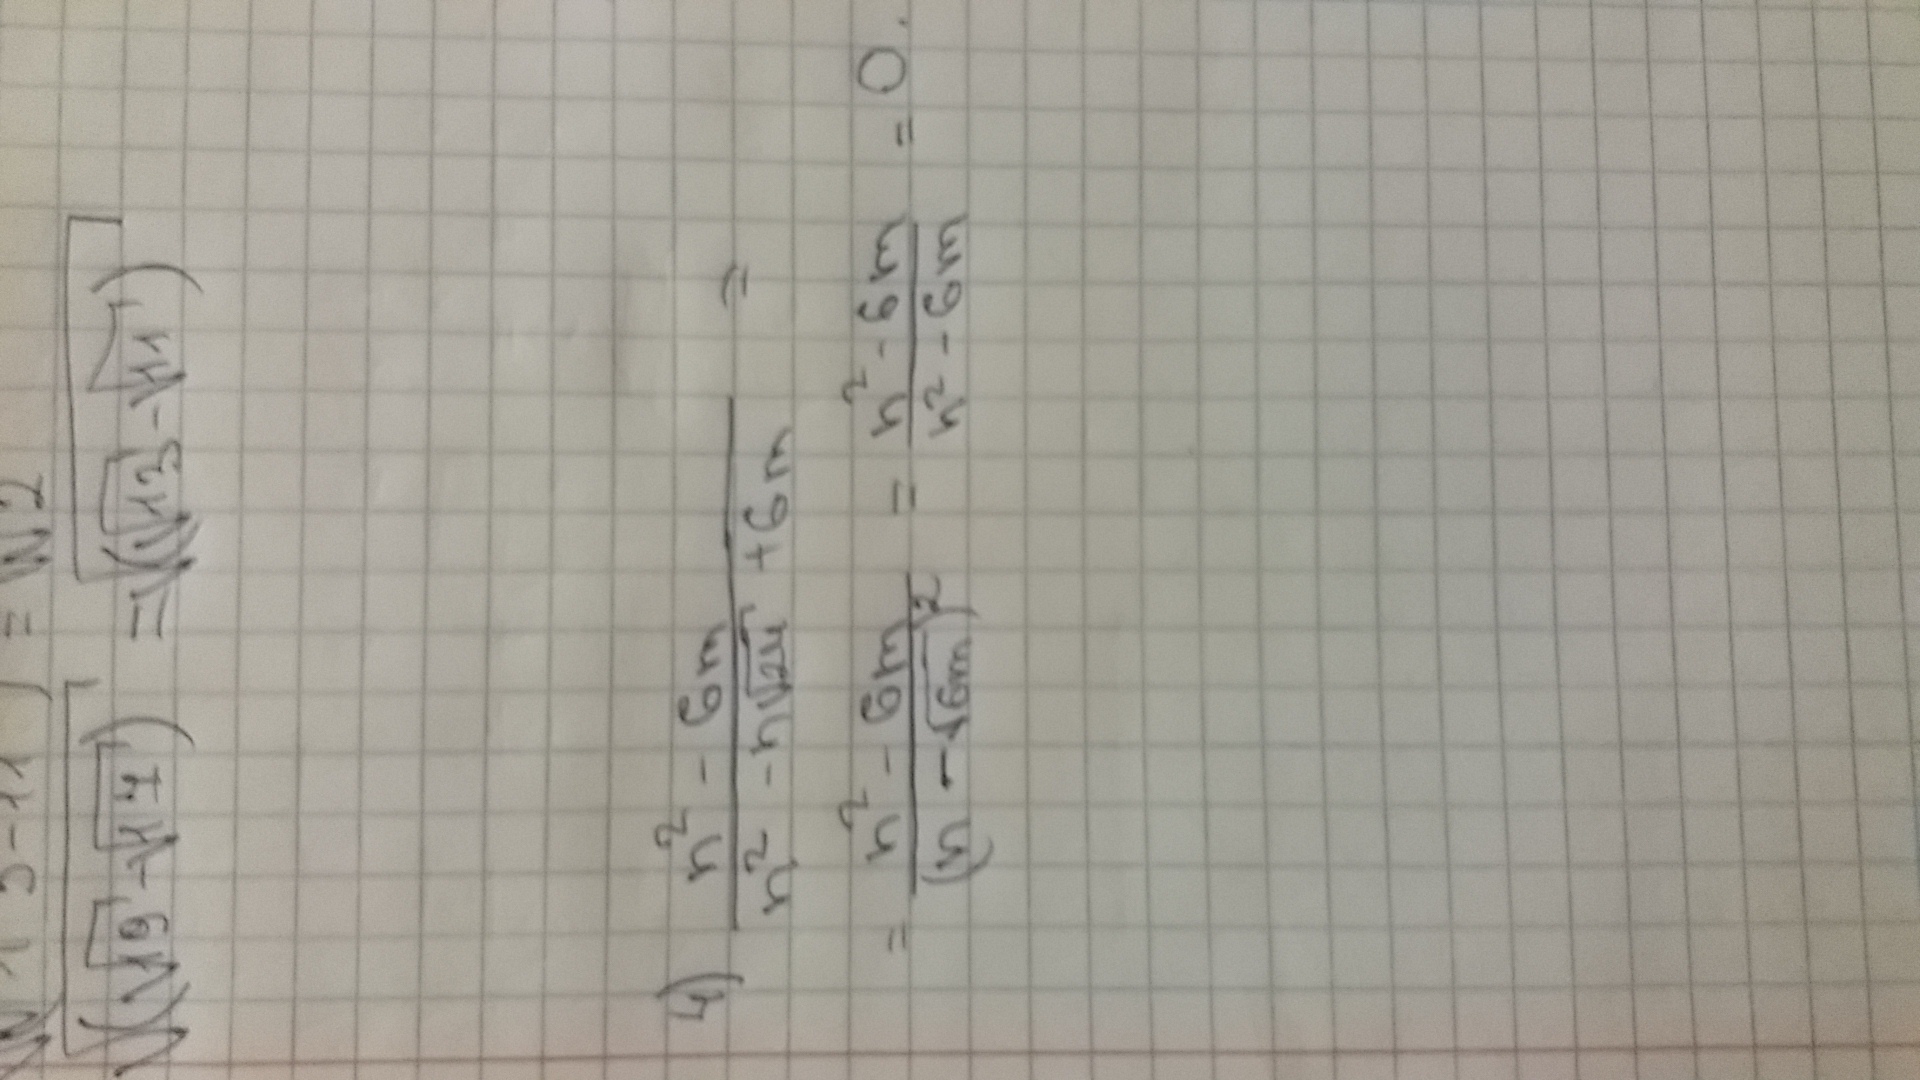 = √2
√(√19 - √17) = √(√13 - √11)
4) (n² - 6m) / (n² - n√24 + 6m) =
= (n² - 6m) / (n - √6m)² = (n² - 6m) / (n² - 6m) = 0.